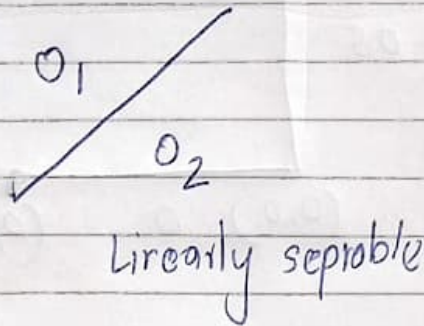 O1
O2
Lirearly seprable